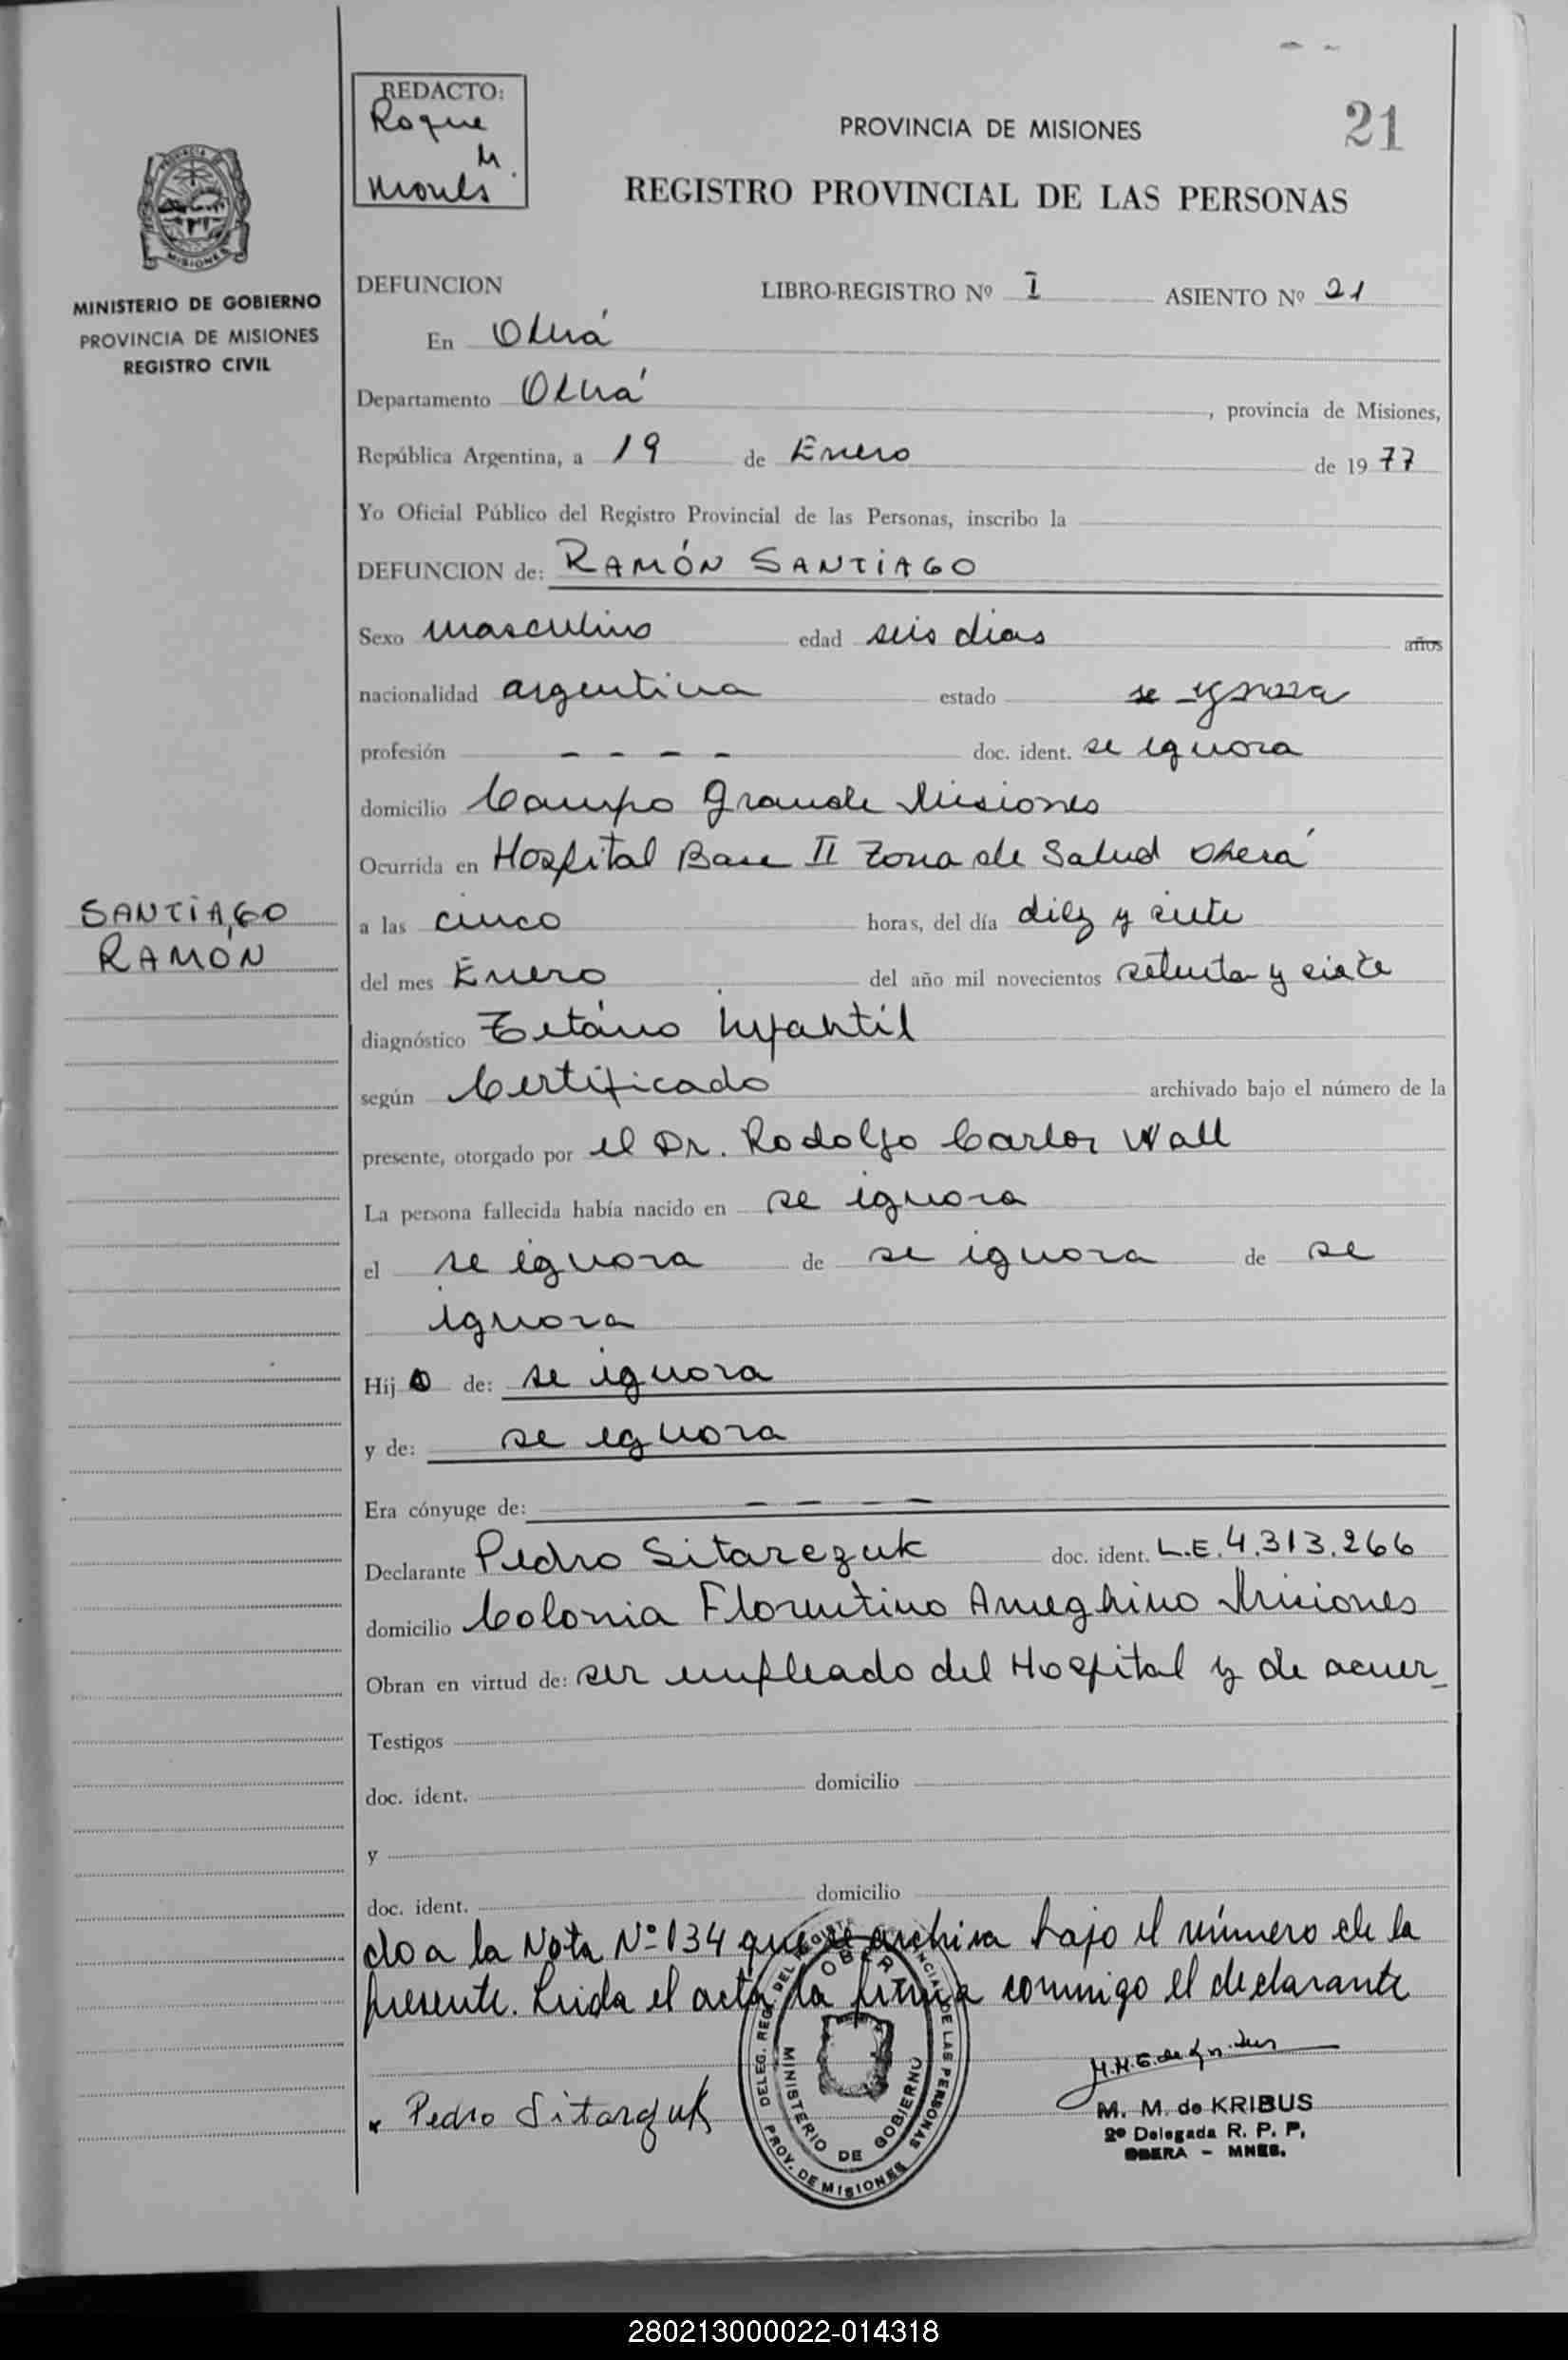 REDACTO:
Roque
M.
PROVINCIA DE MISIONES
21
REGISTRO PROVINCIAL DE LAS PERSONAS
PROVINCIA DE
MISIONES
MINISTERIO DE GOBIERNO
PROVINCIA DE MISIONES
REGISTRO CIVIL
DEFUNCION LIBRO-REGISTRO Nº I ASIENTO Nº 21
En Oberá
Departamento Oberá, provincia de Misiones,
República Argentina, a 19 de Enero de 1977
Yo Oficial Público del Registro Provincial de las Personas, inscribo la
DEFUNCION de: RAMÓN SANTIAGO
Sexo masculino edad seis dias años
nacionalidad argentina estado se ignora
profesión - - - - doc. ident. se ignora
domicilio Campo Grande Misiones
Ocurrida en Hospital Base II Zona de Salud Oberá
SANTIAGO
RAMÓN
a las cinco horas, del día diez y siete
del mes Enero del año mil novecientos setenta y siete
diagnóstico Tetáno Infantil
según Certificado archivado bajo el número de la
presente, otorgado por el Dr. Rodolfo Carlos Wall
La persona fallecida había nacido en se ignora
el se ignora de se ignora de se
ignora
Hijo de: se ignora
y de: se ignora
Era cónyuge de: - - - -
Declarante Pedro Sitarczuk doc. ident. L.E. 4.313.266
domicilio Colonia Florentino Ameghino Misiones
Obran en virtud de: ser empleado del Hospital y de acuer_
Testigos
doc. ident. domicilio
y
doc. ident. domicilio
do a la Nota Nº 134 que se archiva bajo el número de la
presente. Leida el acta la firma conmigo el declarante
Pedro Sitarczuk
DELEG. REG. DEL REGISTRO PROVINCIAL DE LAS PERSONAS
OBERA
MINISTERIO DE GOBIERNO
PROV. DE MISIONES
M. M. de KRIBUS
2º Delegada R. P. P.
OBERA - MNES.
280213000022-014318